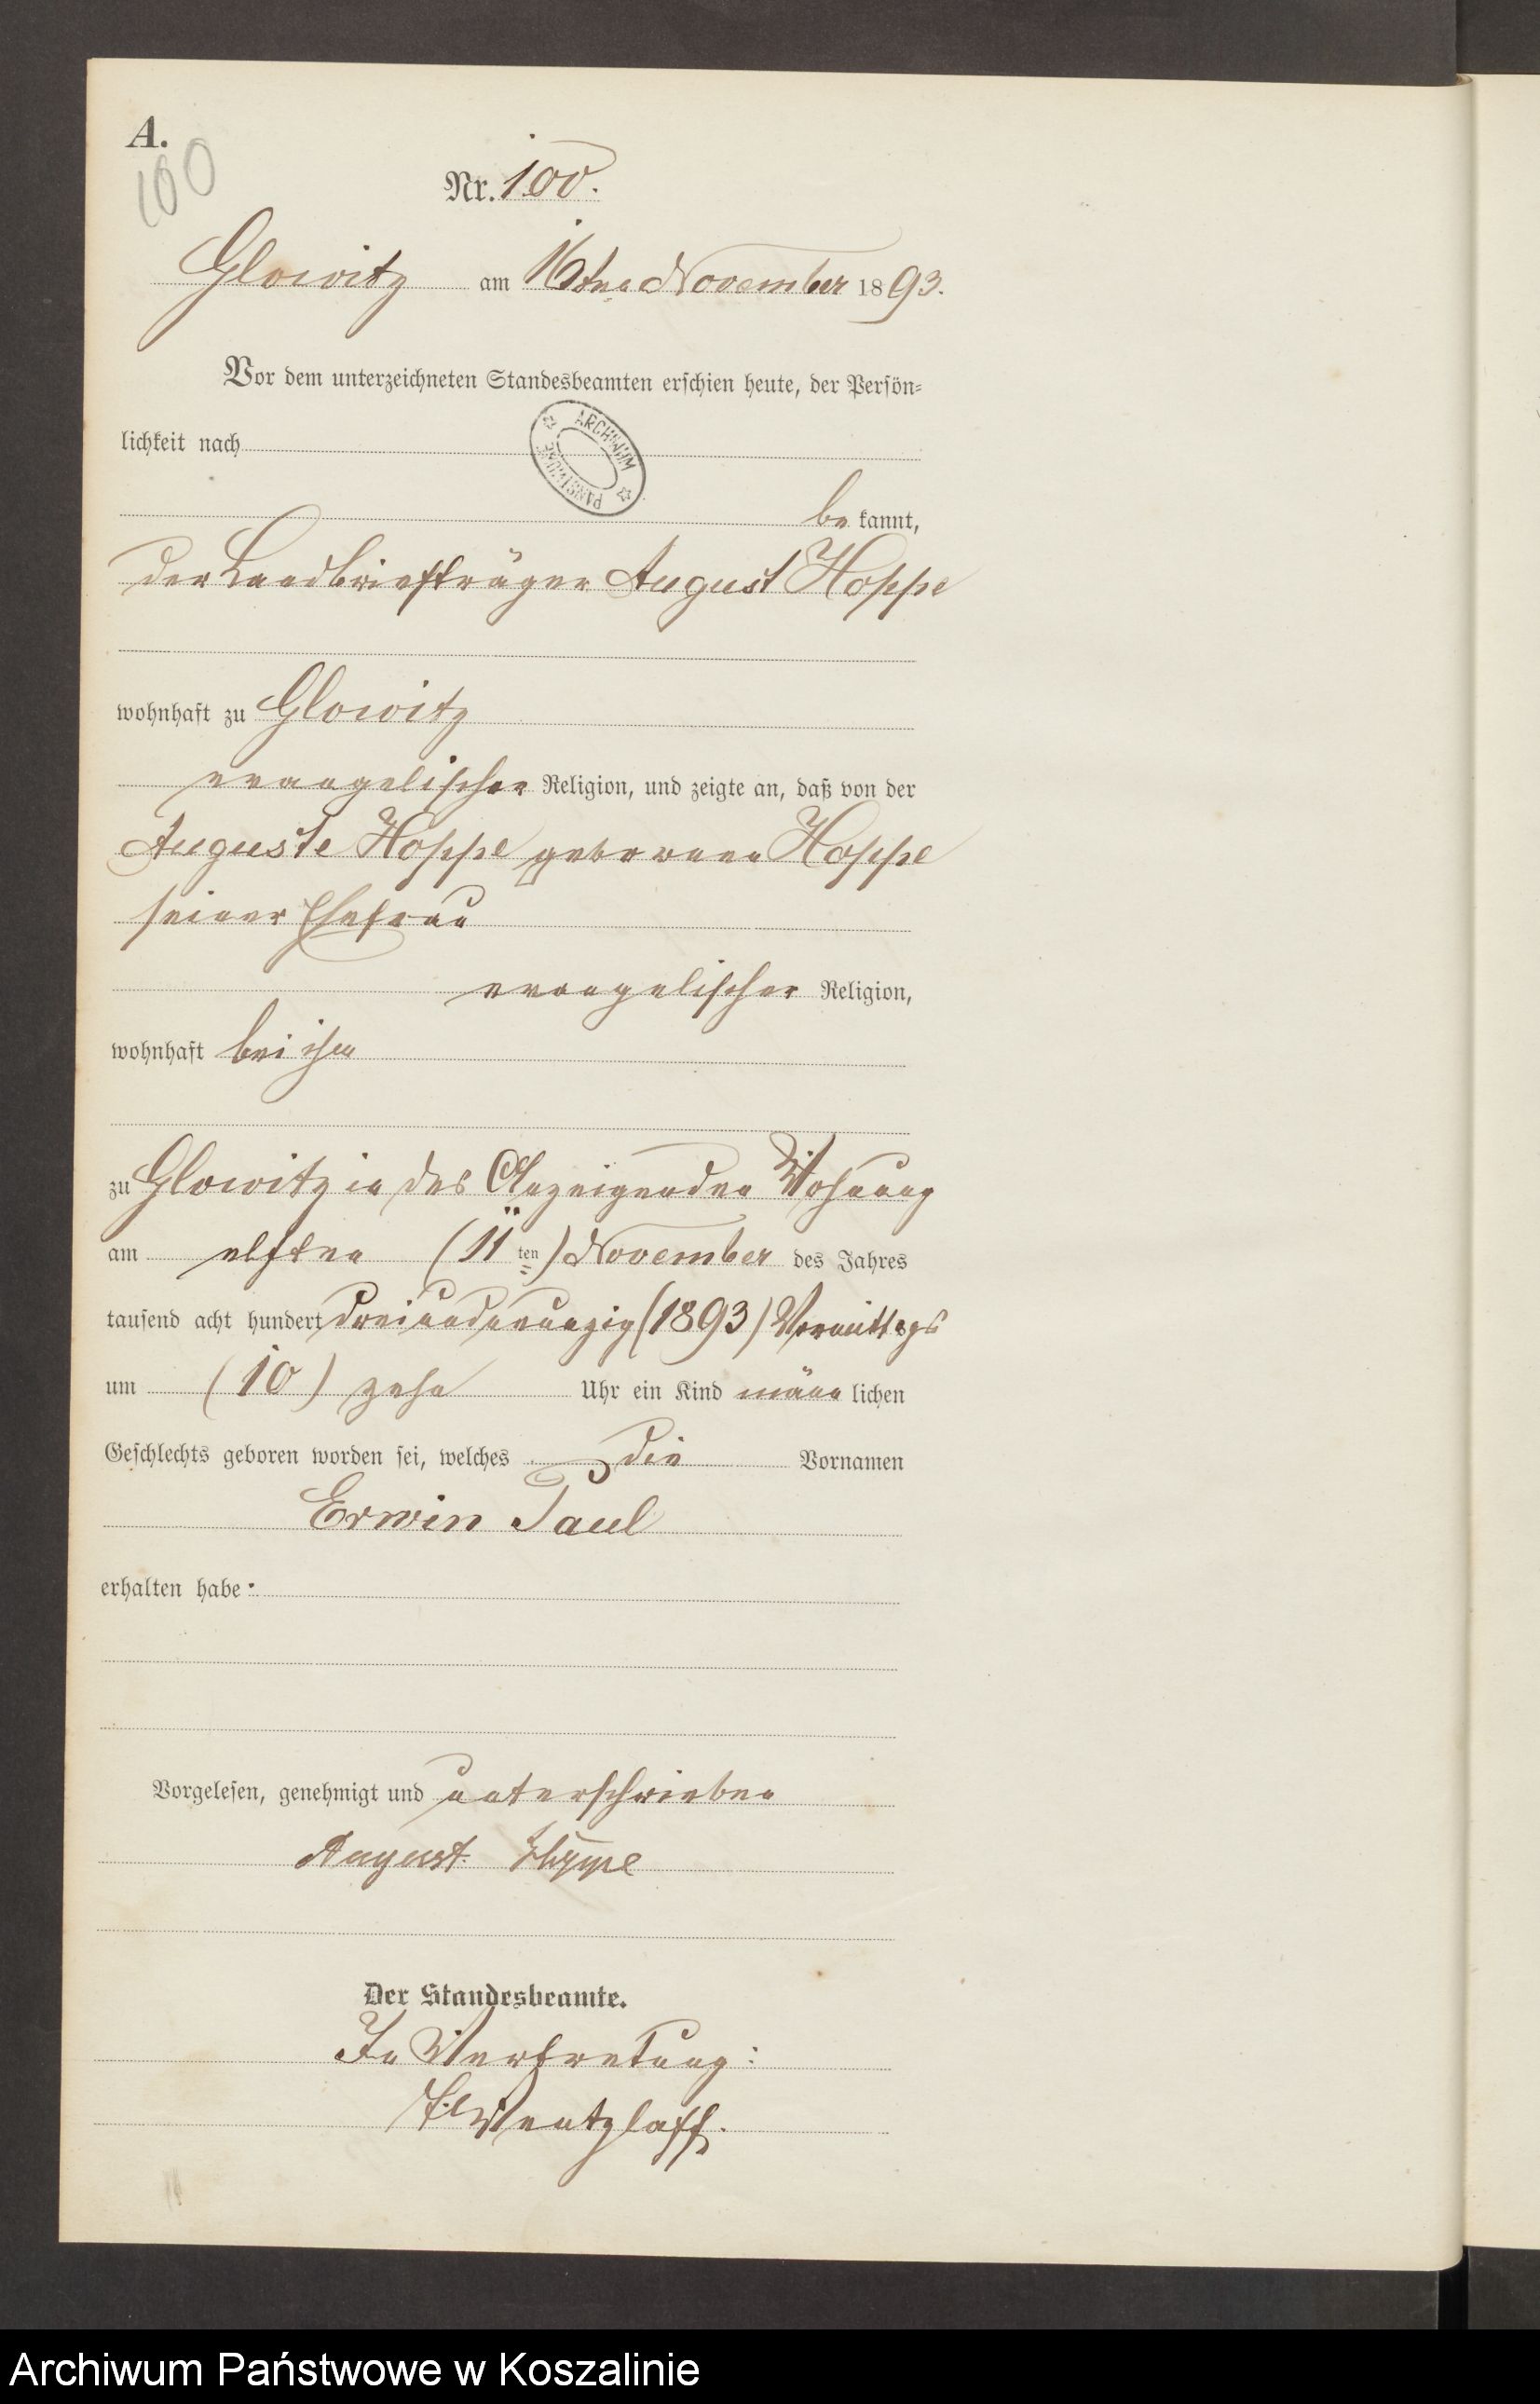 A.
100
Nr. 100.
Glowitz am 16ten November 1893.
Vor dem unterzeichneten Standesbeamten erschien heute, der Persön-
lichkeit nach
ARCHIWUM PAŃSTWOWE
be kannt,
der Landbriefträger August Hoppe
wohnhaft zu Glowitz
evangelischer Religion, und zeigte an, daß von der
Auguste Hoppe geborenen Hoppe
seiner Ehefrau
evangelischer Religion,
wohnhaft bei ihm
zu Glowitz in des Anzeigenden Wohnung
am elften (11 ten) November des Jahres
tausend acht hundert dreiundneunzig (1893) Vormittags
um (10) zehn Uhr ein Kind männ lichen
Geschlechts geboren worden sei, welches die Vornamen
Erwin Paul
erhalten habe.
Vorgelesen, genehmigt und unterschrieben
August Hoppe
Der Standesbeamte.
In Vertretung:
Wentzlaff.
Archiwum Państwowe w Koszalinie